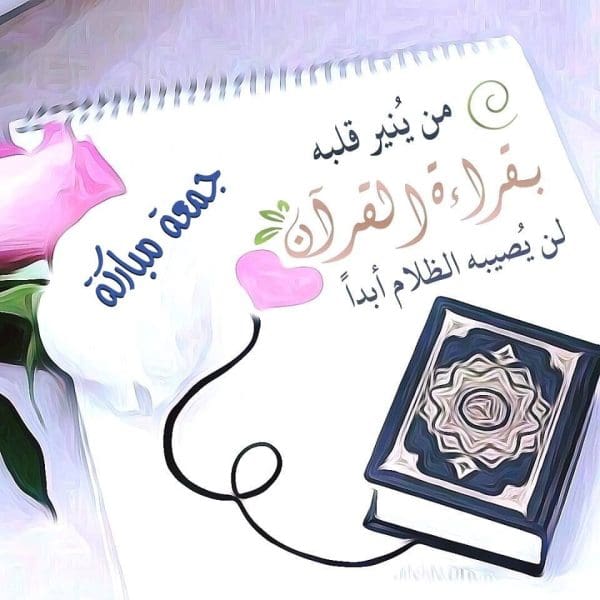 من يُنير قلبه
بقراءة القرآن
لن يُصيبه الظلام أبداً
جمعة مباركة